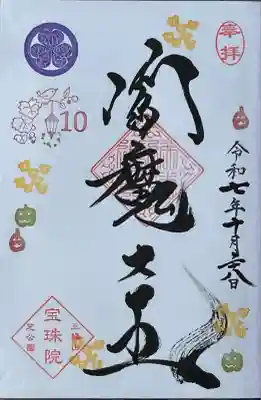 奉拝
令和七年十月廿八日
閻魔大王
10
三縁山
宝珠院
芝公園